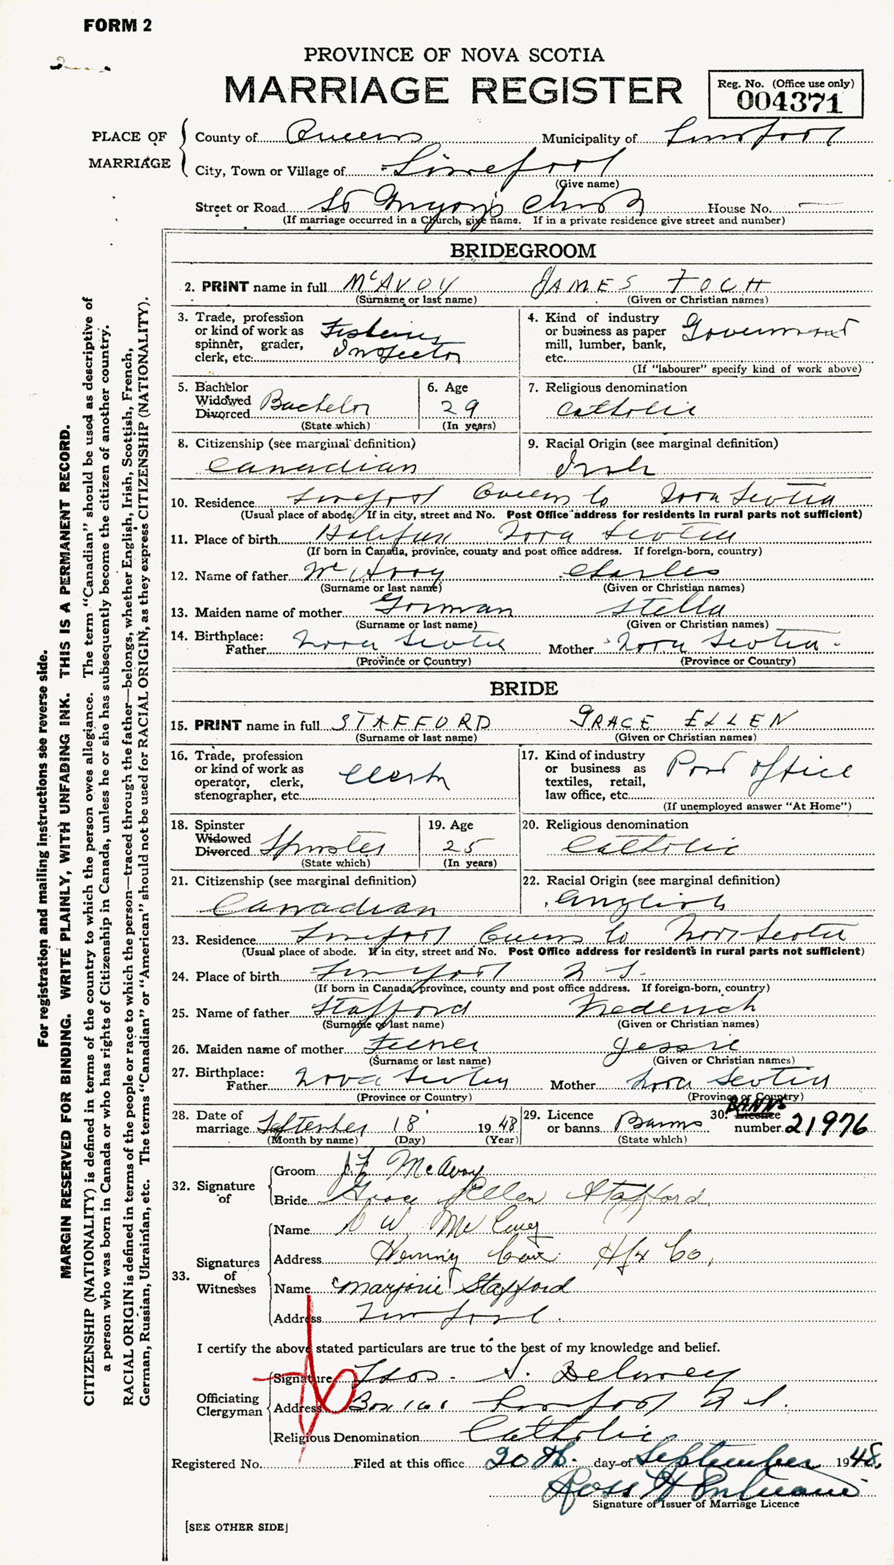 FORM 2
PROVINCE OF NOVA SCOTIA
MARRIAGE REGISTER
Reg. No. (Office use only)
004371
PLACE OF MARRIAGE
County of Queens Municipality of Liverpool
City, Town or Village of Liverpool
(Give name)
Street or Road St Gregory's Church House No. —
(If marriage occurred in a Church, give name. If in a private residence give street and number)
BRIDEGROOM
2. PRINT name in full McAVOY JAMES FOCH
(Surname or last name) (Given or Christian names)
3. Trade, profession or kind of work as spinner, grader, clerk, etc. Fisheries Inspector
4. Kind of industry or business as paper mill, lumber, bank, etc. Government
(If "labourer" specify kind of work above)
5. Bachelor Widowed Divorced Bachelor
(State which)
6. Age 29
(In years)
7. Religious denomination
Catholic
8. Citizenship (see marginal definition)
Canadian
9. Racial Origin (see marginal definition)
Irish
10. Residence Liverpool Queens Co Nova Scotia
(Usual place of abode. If in city, street and No. Post Office address for residents in rural parts not sufficient)
11. Place of birth Halifax Nova Scotia
(If born in Canada, province, county and post office address. If foreign-born, country)
12. Name of father McAvoy Charles
(Surname or last name) (Given or Christian names)
13. Maiden name of mother Gorman Stella
(Surname or last name) (Given or Christian names)
14. Birthplace:
Father Nova Scotia Mother Nova Scotia
(Province or Country) (Province or Country)
BRIDE
15. PRINT name in full STAFFORD GRACE ELLEN
(Surname or last name) (Given or Christian names)
16. Trade, profession or kind of work as operator, clerk, stenographer, etc. Clerk
17. Kind of industry or business as textiles, retail, law office, etc. Post Office
(If unemployed answer "At Home")
18. Spinster Widowed Divorced Spinster
(State which)
19. Age 25
(In years)
20. Religious denomination
Catholic
21. Citizenship (see marginal definition)
Canadian
22. Racial Origin (see marginal definition)
English
23. Residence Liverpool Queens Co Nova Scotia
(Usual place of abode. If in city, street and No. Post Office address for residents in rural parts not sufficient)
24. Place of birth Liverpool N.S.
(If born in Canada, province, county and post office address. If foreign-born, country)
25. Name of father Stafford Frederick
(Surname or last name) (Given or Christian names)
26. Maiden name of mother Jessie
(Surname or last name) (Given or Christian names)
27. Birthplace:
Father Nova Scotia Mother Nova Scotia
(Province or Country) (Province or Country)
28. Date of marriage September 18 1948
(Month by name) (Day) (Year)
29. Licence or banns Banns
(State which)
30. BANNS Licence number 21976
32. Signature of
Groom J.F. McAvoy
Bride Grace Ellen Stafford
33. Signatures of Witnesses
Name W.
Address Hfx Co.
Name Marjorie Stafford
Address Liverpool
I certify the above stated particulars are true to the best of my knowledge and belief.
Officiating Clergyman
Signature Thos.
Address Box 161 Liverpool N.S.
Religious Denomination Catholic
Registered No. Filed at this office 20th. day of September 1948.
Ross
Signature of Issuer of Marriage Licence
[SEE OTHER SIDE]
For registration and mailing instructions see reverse side.
MARGIN RESERVED FOR BINDING. WRITE PLAINLY, WITH UNFADING INK. THIS IS A PERMANENT RECORD.
CITIZENSHIP (NATIONALITY) is defined in terms of the country to which the person owes allegiance. The term "Canadian" should be used as descriptive of
a person who was born in Canada or who has rights of Citizenship in Canada, unless he or she has subsequently become the citizen of another country.
RACIAL ORIGIN is defined in terms of the people or race to which the person—traced through the father—belongs, whether English, Irish, Scottish, French,
German, Russian, Ukrainian, etc. The terms "Canadian" or "American" should not be used for RACIAL ORIGIN, as they express CITIZENSHIP (NATIONALITY).